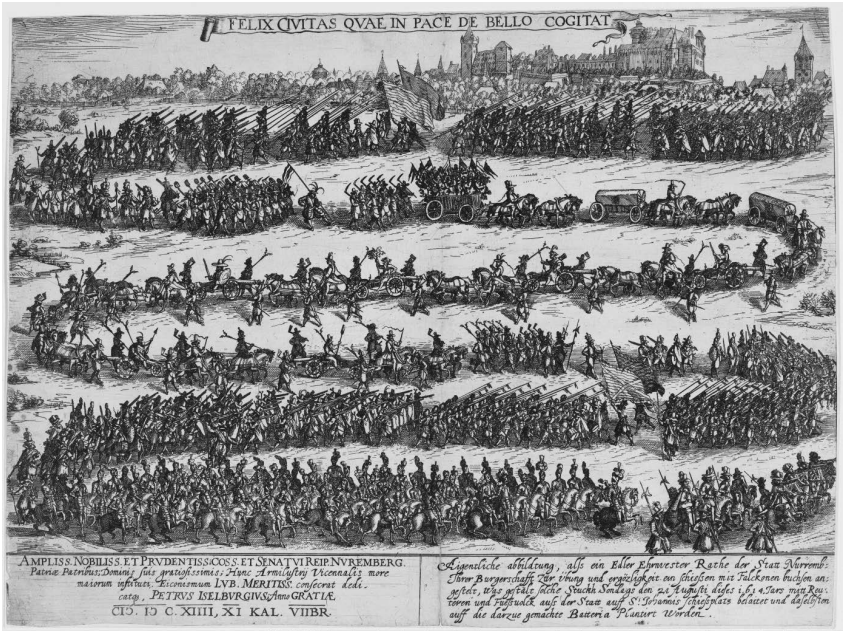 FELIX CIVITAS QVAE IN PACE DE BELLO COGITAT
AMPLISS. NOBILISS. ET PRVDENTISS. COSS. ET SENATVI REIP. NVREMBERG.
Patriæ Patribus, Dominis suis gratiosissimis, Hunc Armilustrij Vicennalis more
maiorum instituti, Eiconismum LVB. MERITISS. consecrat dedi-
catq, PETRVS ISELBVRGIVS, Anno GRATIÆ
CIↃ. IↃ C. XIIII, XI KAL. VIIBR.
Aigentliche abbildung, alls ein Edler Ehrnvester Rathe der Statt Nürremb:
Ihrer Burgerschafft Zur übung und ergözligkeit ein schiessen mit Falckonen buchsen an:
gestelt, Was gstalt solche Stuckh Sondags den 21 Augusti dises 1614 Jars mitt Reu:
teren und Fuesvolck auss der Statt auff S.t Johannis schiesplatz belaitet und daselbsten
auff die darzue gemachte Batteria Plantirt Worden.